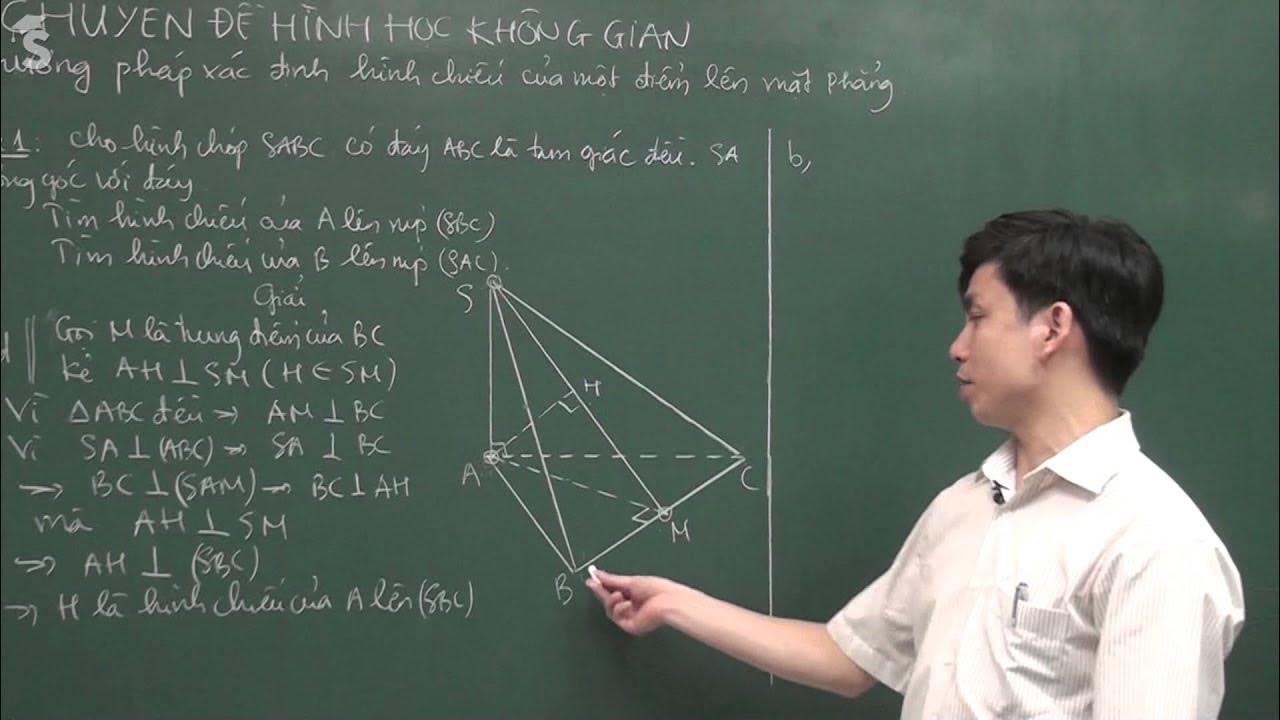 CHUYÊN ĐỀ HÌNH HỌC KHÔNG GIAN
pháp xác định hình chiếu của một điểm lên mặt phẳng
1: Cho hình chóp SABC có đáy ABC là tam giác đều. SA
góc với đáy
Tìm hình chiếu của A lên mp (SBC)
Tìm hình chiếu của B lên mp (SAC).
Giải
Gọi M là trung điểm của BC
Kẻ AH ⊥ SM (H ∈ SM)
Vì ΔABC đều → AM ⊥ BC
Vì SA ⊥ (ABC) → SA ⊥ BC
→ BC ⊥ (SAM) → BC ⊥ AH
mà AH ⊥ SM
→ AH ⊥ (SBC)
→ H là hình chiếu của A lên (SBC)
S
H
A
C
M
B
b,
S